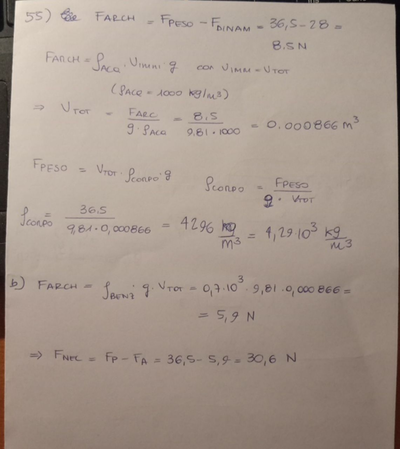 55) FARCH = FPESO - FDINAM = 36,5 - 28 =
8.5 N
FARCH = ρACQ · VIMM · g con VIMM = VTOT
(ρACQ = 1000 kg/m³)
⇒ VTOT = FARC / g · ρACQ = 8,5 / 9,81 · 1000 = 0.000866 m³
FPESO = VTOT · ρCORPO · g ρCORPO = FPESO / g · VTOT
ρCORPO = 36.5 / 9,81 · 0,000866 = 4296 kg/m³ = 4,29 10³ kg/m³
b) FARCH = ρBENZ · g · VTOT = 0,7 · 10³ · 9,81 · 0,000866 =
= 5,9 N
⇒ FNEC = FP - FA = 36,5 - 5,9 = 30,6 N